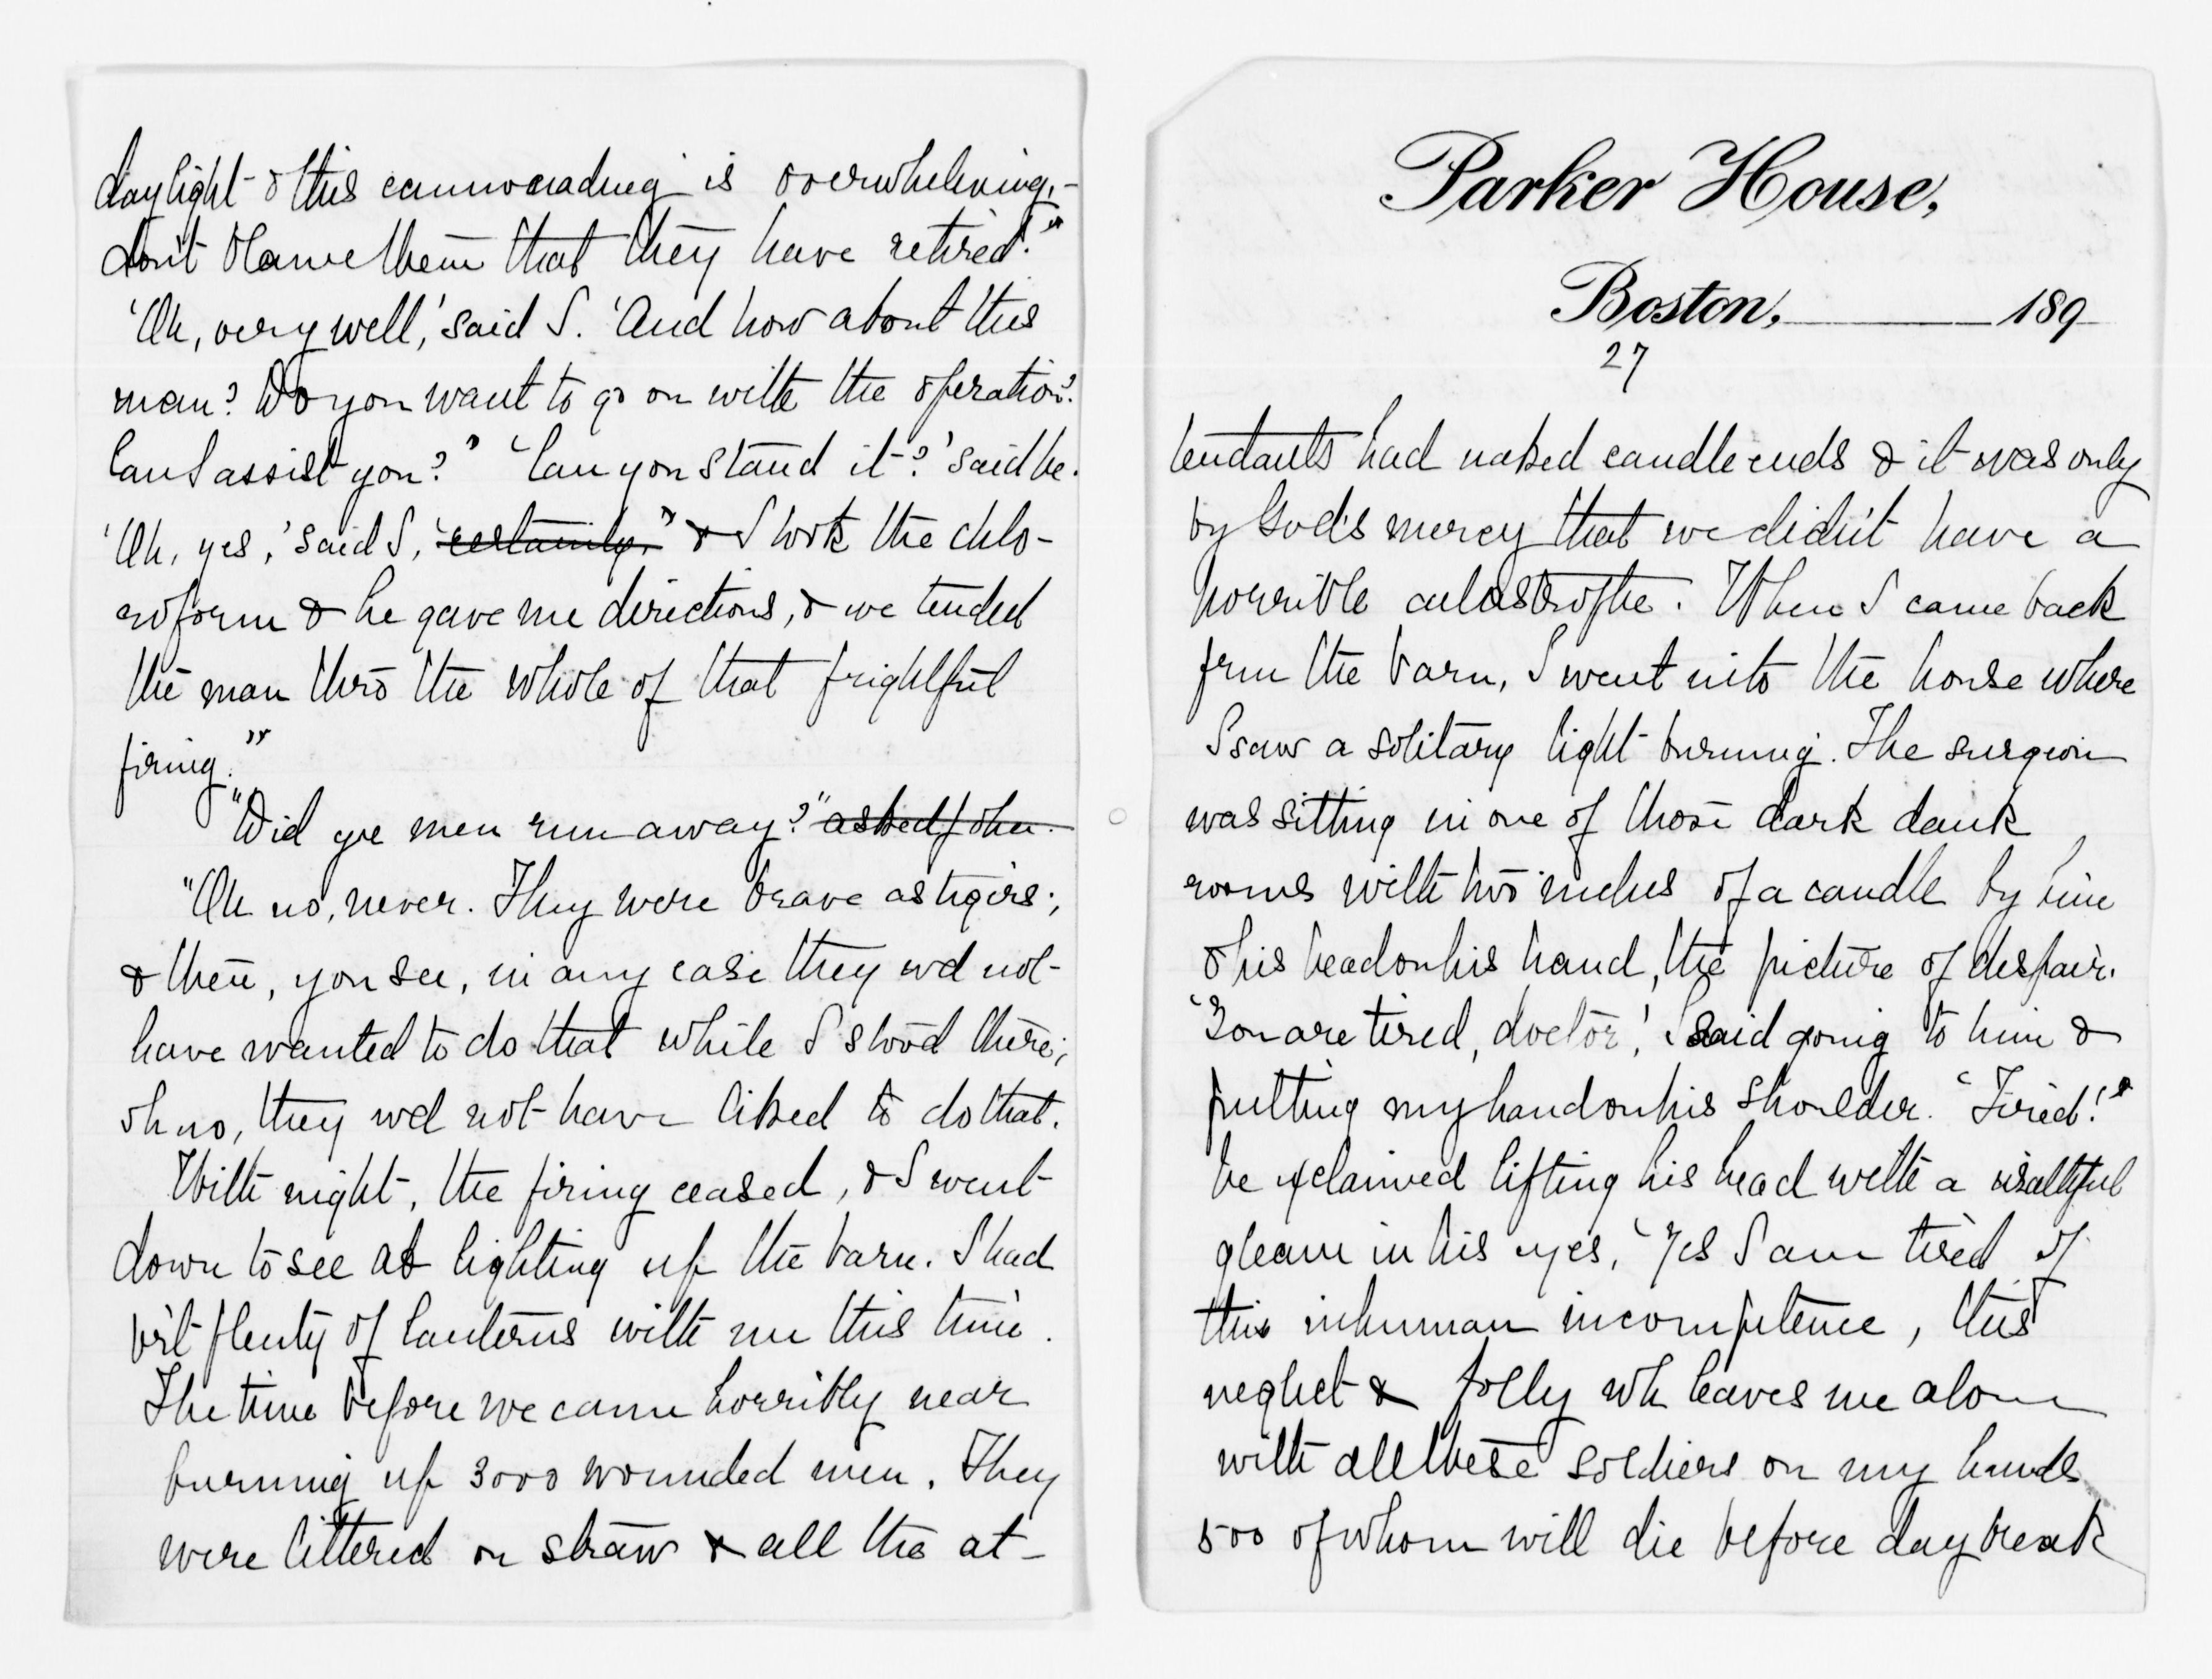 daylight & this cannonading is overwhelming,-
don't blame them that they have retired."
'Oh, very well,' said I. 'And how about this
man? Do you want to go on with the operation?
Can I assist you?" 'Can you stand it?' said he.
'Oh, yes,' said I, 'certainly," & I took the chlo-
roform & he gave me directions, & we tended
the man thro the whole of that frightful
firing."
"Did yr men run away?" asked John.
"Oh no, never. They were brave as tigers;
& then, you see, in any case they wd not
have wanted to do that while I stood there;
oh no, they wd not have liked to do that.
With night, the firing ceased, & I went
down to see ab lighting up the barn. I had
brt plenty of lanterns with me this time.
The time before we came horribly near
burning up 3000 wounded men. They
were littered on straw & all the at-
Parker House,
Boston, 189
27
tendants had naked candle ends & it was only
by God's mercy that we didn't have a
horrible catastrophe. When I came back
frm the barn, I went into the house where
I saw a solitary light burning. The surgeon
was sitting in one of those dark dank
rooms with two inches of a candle by him
& his head on his hand, the picture of despair.
'You are tired, doctor,' I said going to him &
putting my hand on his shoulder. 'Tired!"
he exclaimed lifting his head with a wrathful
gleam in his eyes, 'Yes I am tired of
this inhuman incompetence, this
neglect & folly wh leaves me alone
with all these soldiers on my hands
500 of whom will die before daybreak